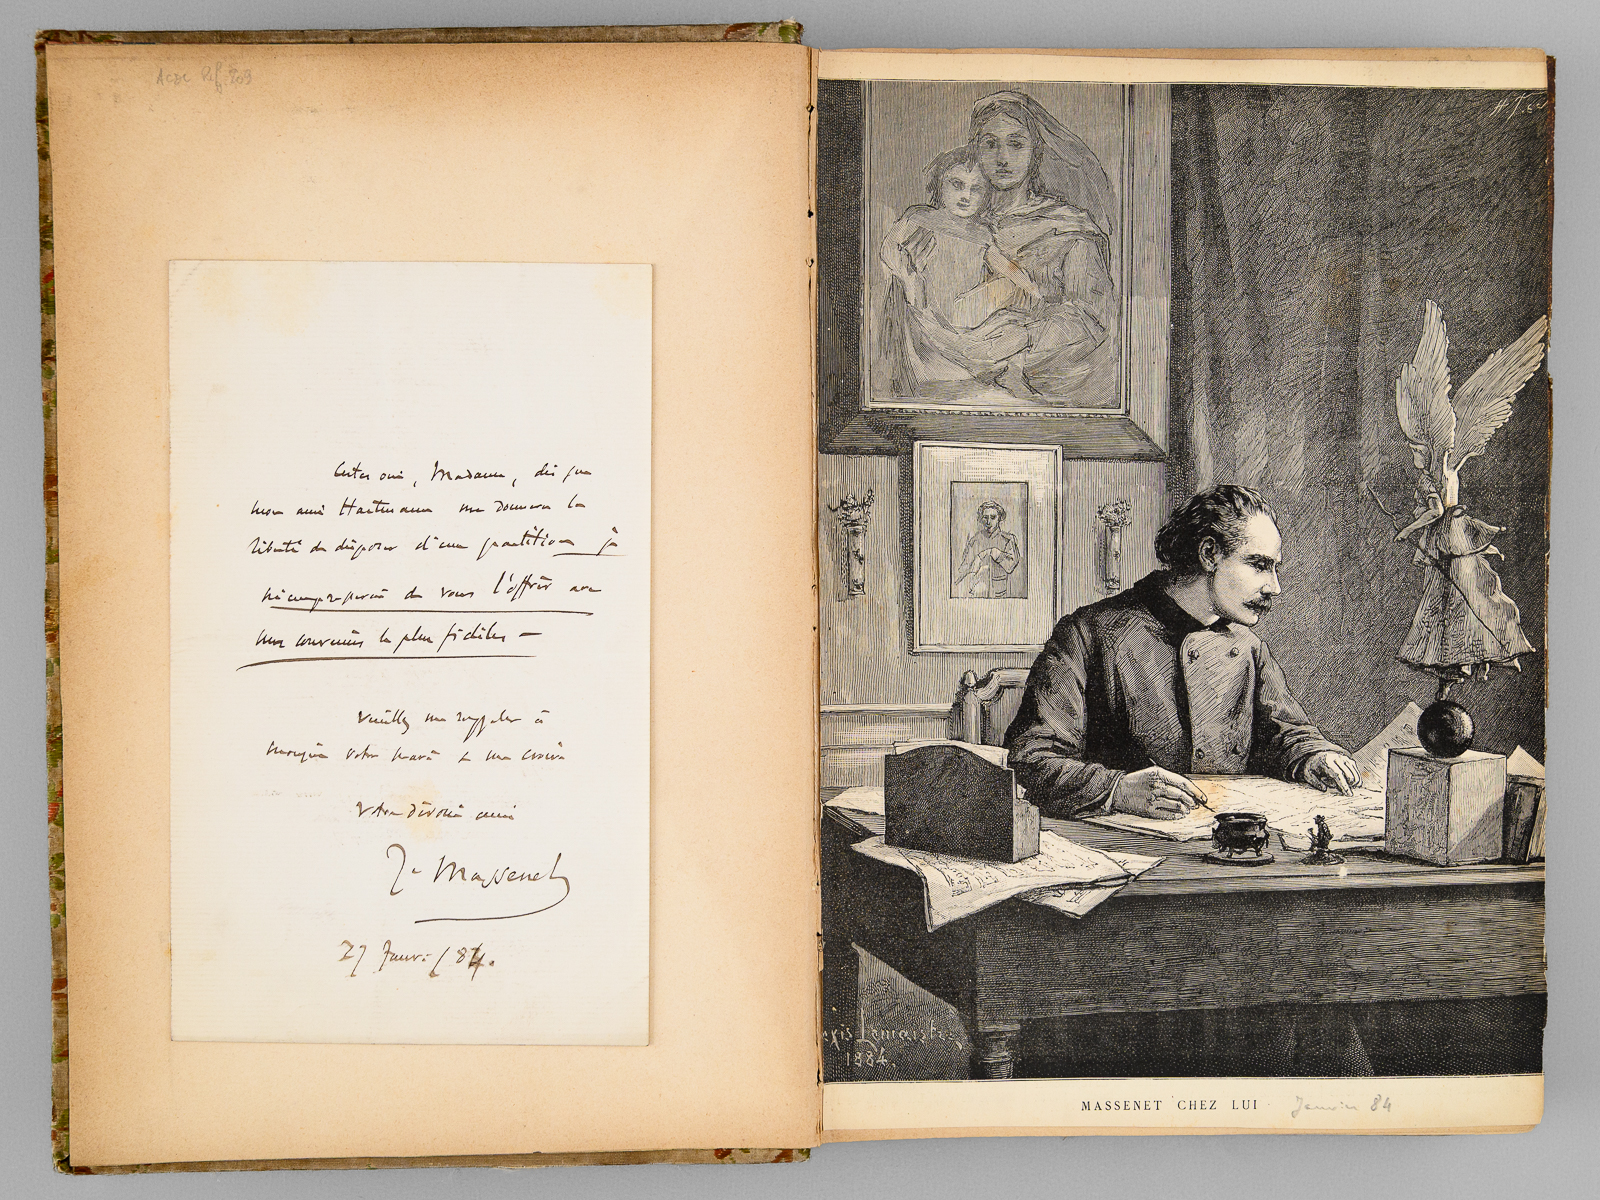 Certes oui, Madame, dès que
mon ami Hartmann me donnera la
liberté de disposer d'une partition je
m'empresserai de vous l'offrir avec
mes souvenirs les plus fidèles —
Veuillez me rappeler à
votre mari & me croire
votre dévoué ami
J. Massenet
27 Janv. / 84.
exis Lemaistre
1884.
MASSENET CHEZ LUI Janvier 84